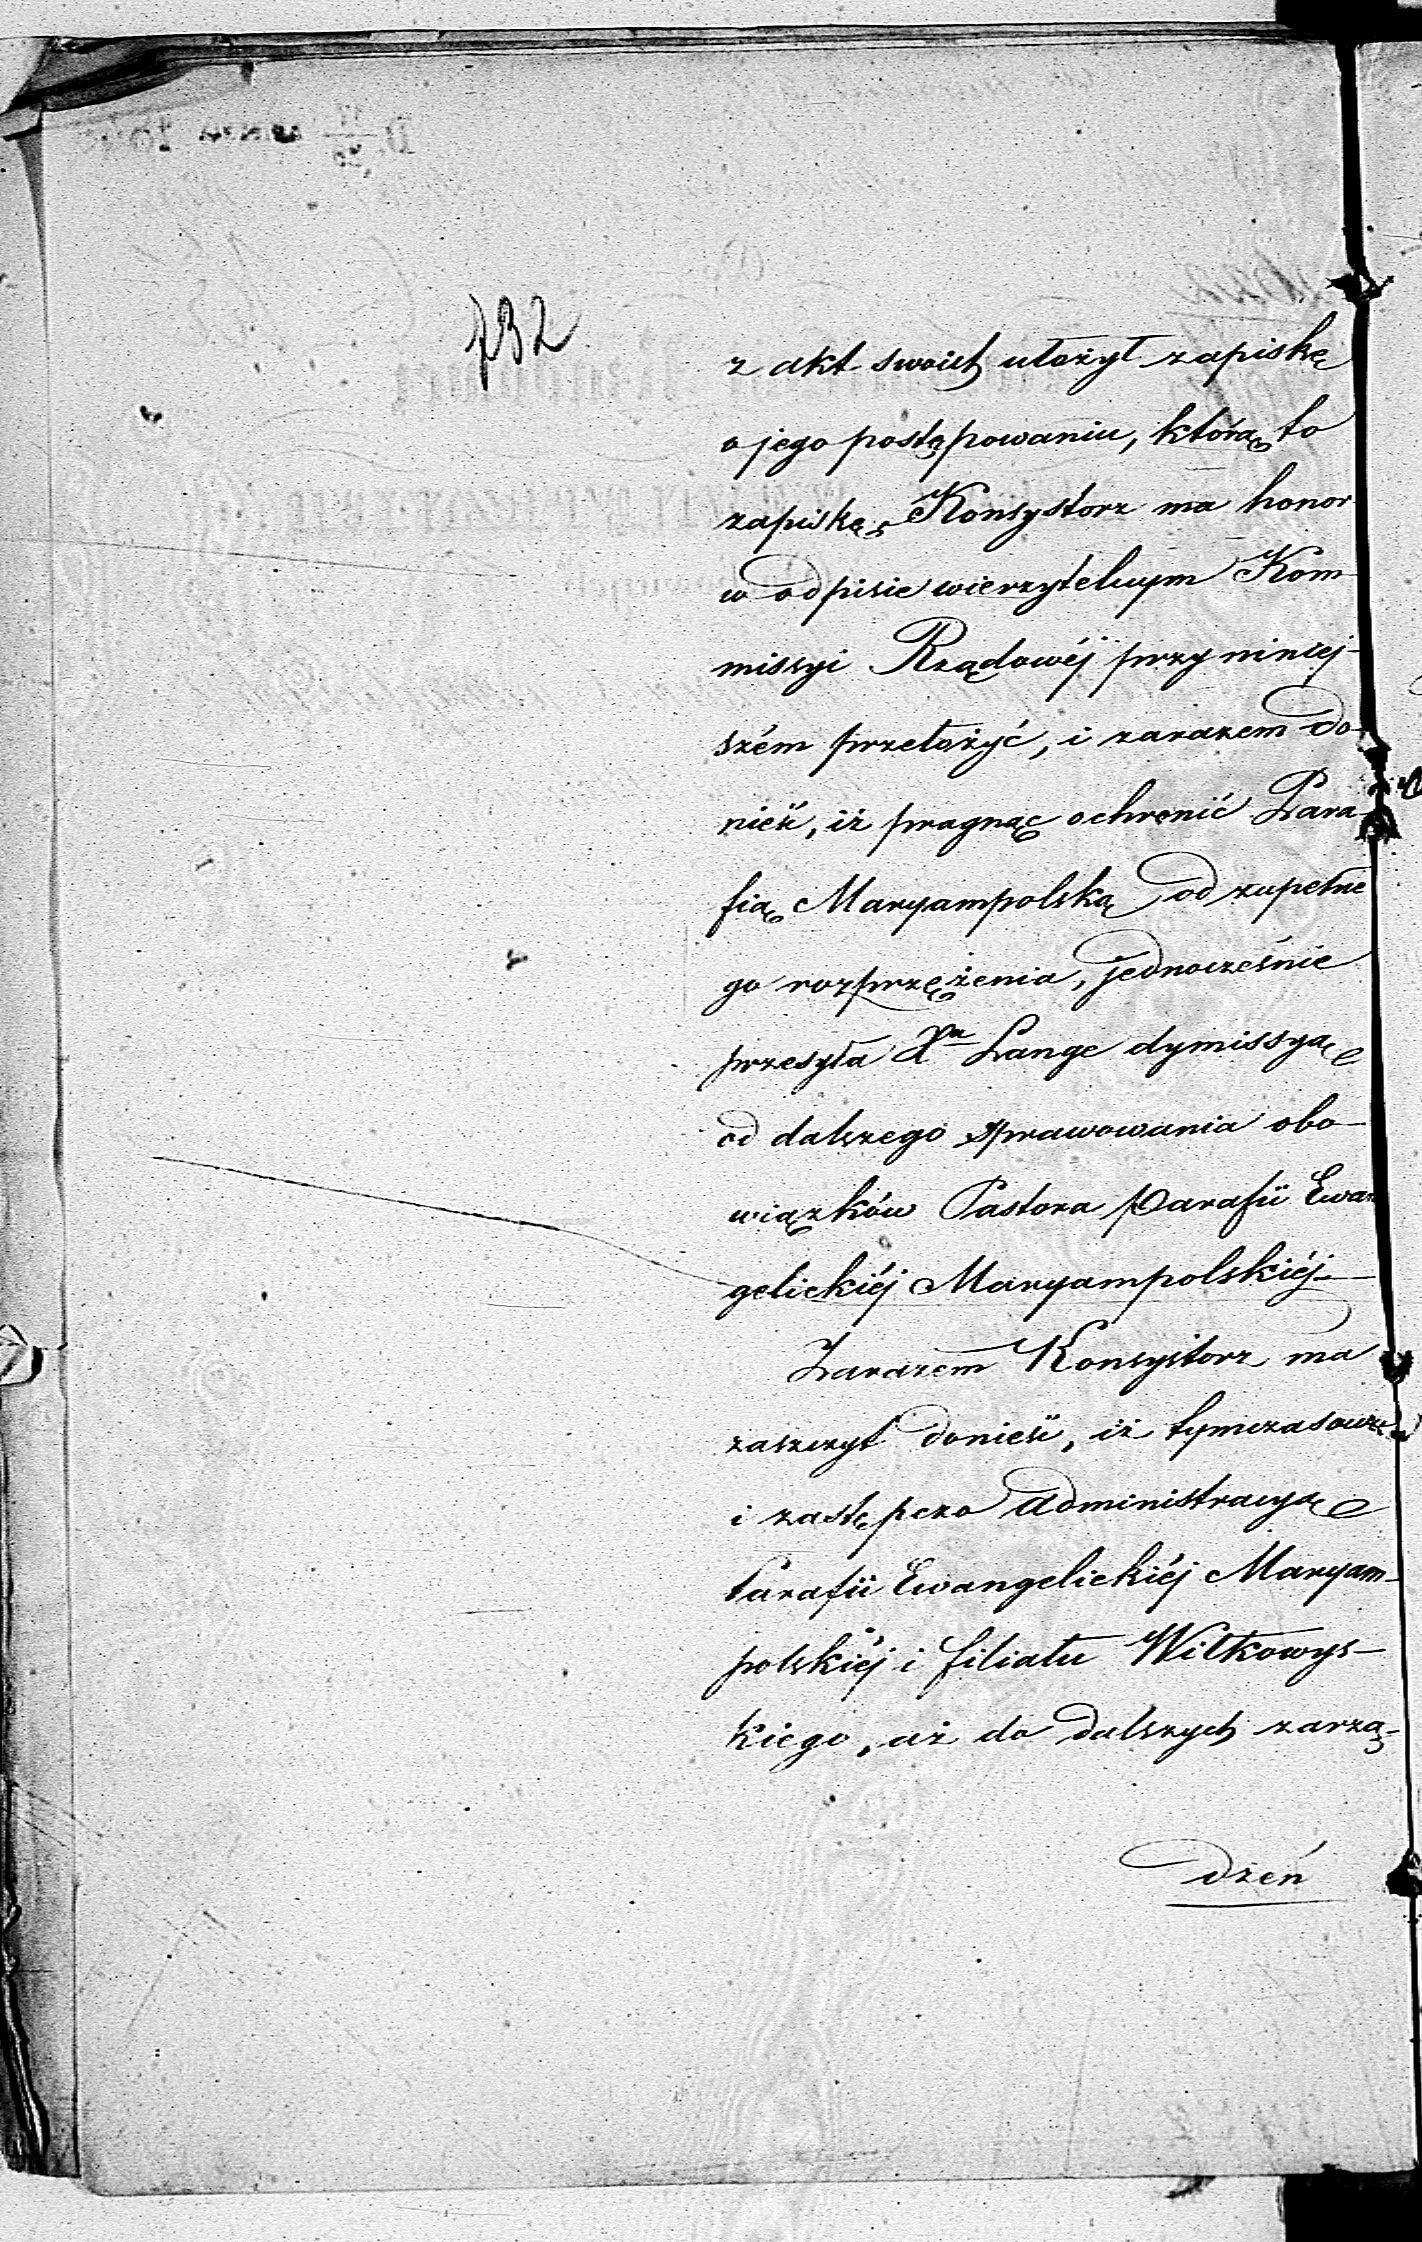 732
z akt swoich ułożył zapiskę
o jego postępowaniu, którą to
zapiskę, Konsystorz ma honor
w odpisie wierzytelnym Kom-
missyi Rządowéj przy niniej-
szém przełożyć, i zarazem do-
nieść, iż pragnąc ochronić Para-
fią Maryampolską od zupełne
go rozprzężenia, jednocześnie
przesyła Xu Lange dymissyą
od dalszego sprawowania obo-
wiązków Pastora Parafii Ewan
gelickiéj Maryampolskiéj-
Zarazem Konsystorz ma
zaszczyt donieść, iż tymczasową
i zastępczo administracyą
Parafii Ewangelickiéj Maryam-
polskiéj i filiału Wiłkowys-
kiego, aż do dalszych zarzą-
dzeń